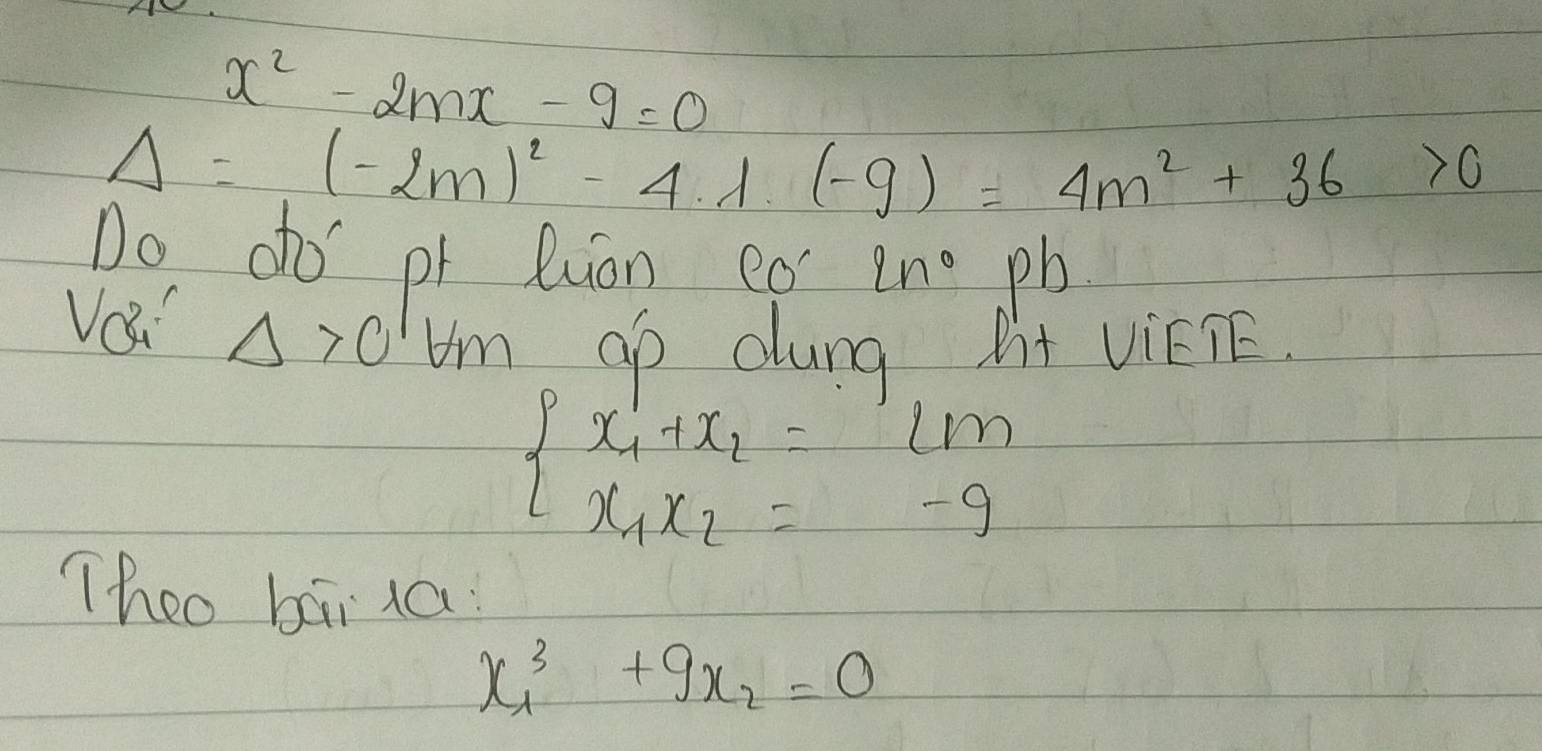 x² - 2mx - 9 = 0
Δ = (-2m)² - 4.1.(-9) = 4m² + 36 > 0
Do đó pt luôn có 2n⁰ pb.
Với Δ > 0 ∀m áp dụng ht VIETE.
{ x₁ + x₂ = 2m
x₁x₂ = -9
Theo bài ra:
x₁³ + 9x₂ = 0